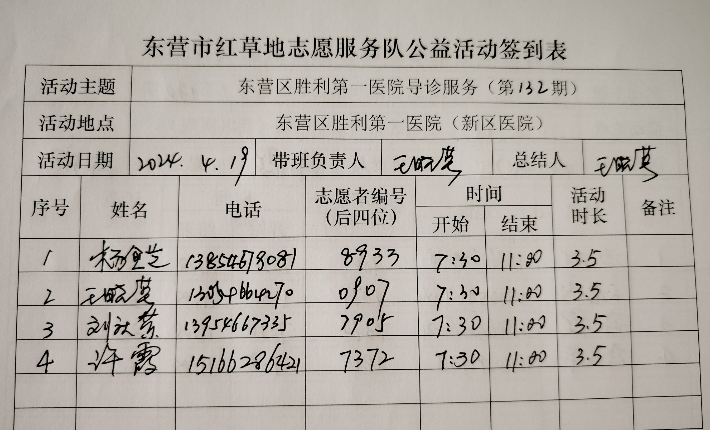 东营市红草地志愿服务队公益活动签到表
活动主题 东营区胜利第一医院导诊服务（第132期）
活动地点 东营区胜利第一医院（新区医院）
活动日期 2024. 4. 19 带班负责人 王晓英 总结人 王晓英
序号 姓名 电话 志愿者编号（后四位） 时间 开始 结束 活动时长 备注
1 8933 7:30 11:00 3.5
2 王晓英 0907 7:30 11:00 3.5
3 13954667335 7905 7:30 11:00 3.5
4 许霞 15166286421 7372 7:30 11:00 3.5